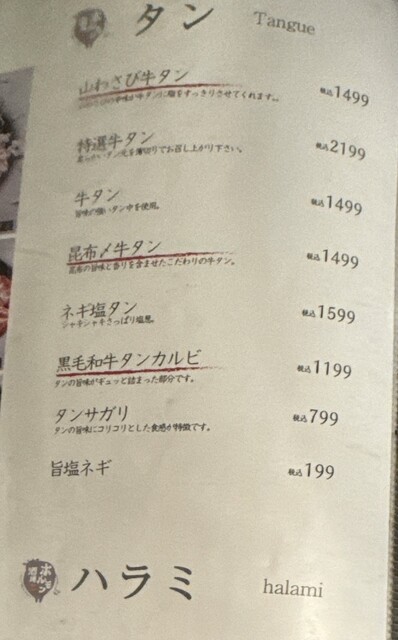 タン Tangue
山わさび牛タン 税込1499
特選牛タン 税込2199
柔らかいタン元を薄切りでお召し上がり下さい。
牛タン 税込1499
旨味の強いタン中を使用。
昆布〆牛タン 税込1499
昆布の旨味と香りを含ませたこだわりの牛タン。
ネギ塩タン 税込1599
シャキシャキさっぱり塩葱。
黒毛和牛タンカルビ 税込1199
タンの旨味がギュッと詰まった部分です。
タンサガリ 税込799
タンの旨味にコリコリとした食感が特徴です。
旨塩ネギ 税込199
ホルモン
酒場
ハラミ halami